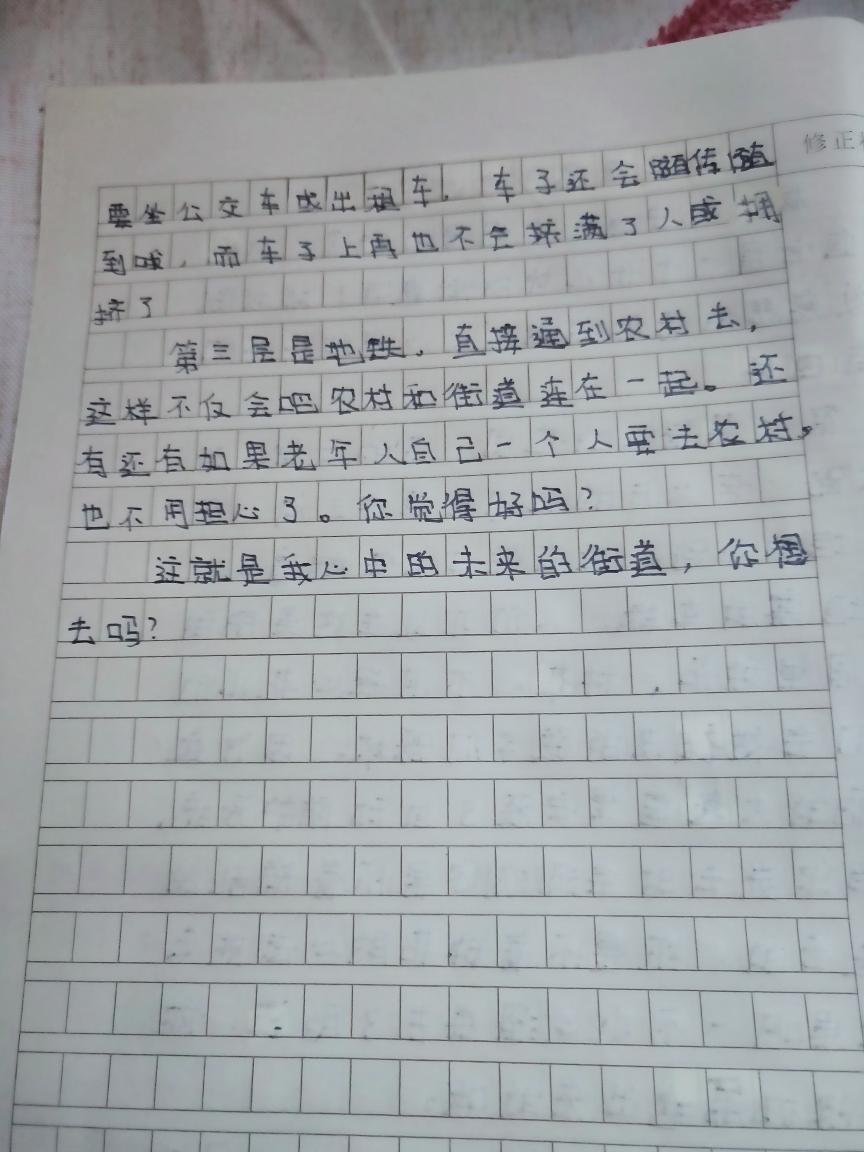 修正
要坐公交车或出租车。车子还会随传随
到哦，而车子上再也不会挤满了人或拥
挤了
第三层是地铁，直接通到农村去，
这样不仅会吧农村和街道连在一起。还
有还有如果老年人自己一个人要去农村。
也不用担心了。你觉得好吗？
这就是我心中的未来的街道，你想
去吗？